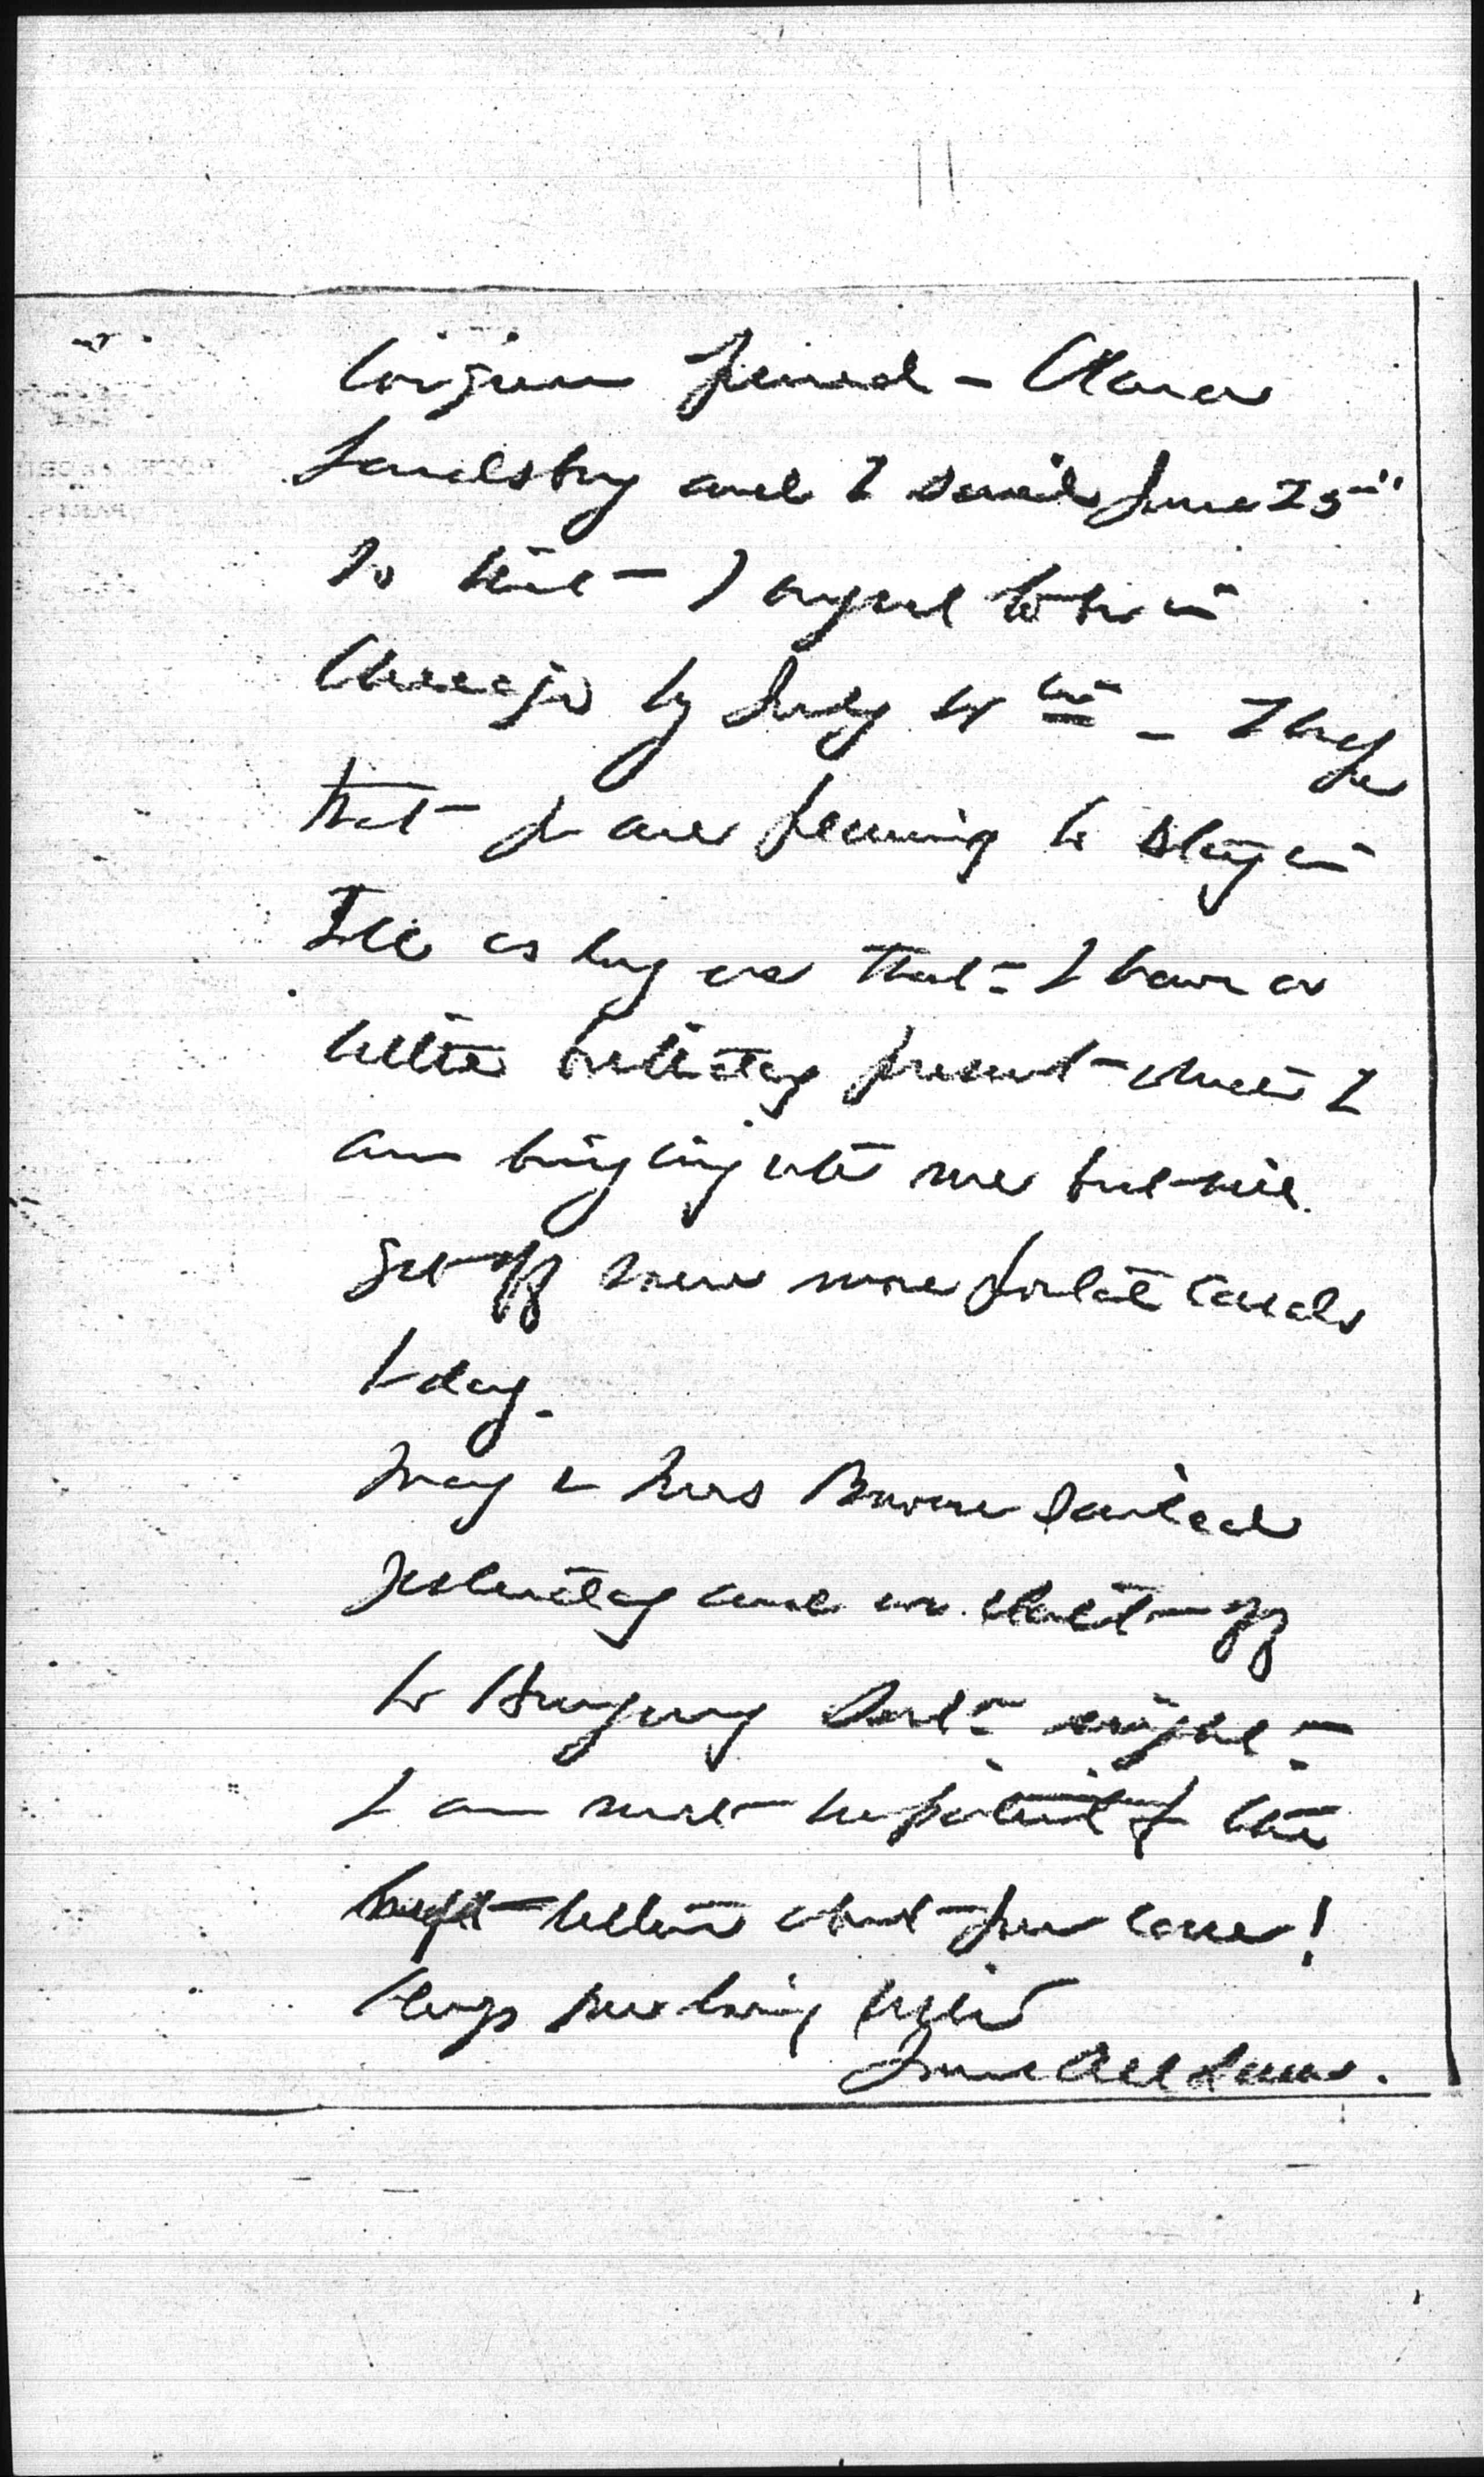 Virginia friend – Clara
Landsberg and I sail June 25"
so that – I expect to be in
Chicago by July 4th – I hope
that you are planning to stay in
Ills as long as that – I have a
little birthday present which I
am bringing with me but will
get off some more postal cards
today.
Mary & Mrs Bowen sailed
yesterday and we start off
to Hungary Sat – night –
I am most impatient for the
letter about your case!
Always your loving friend
Jane Addams.